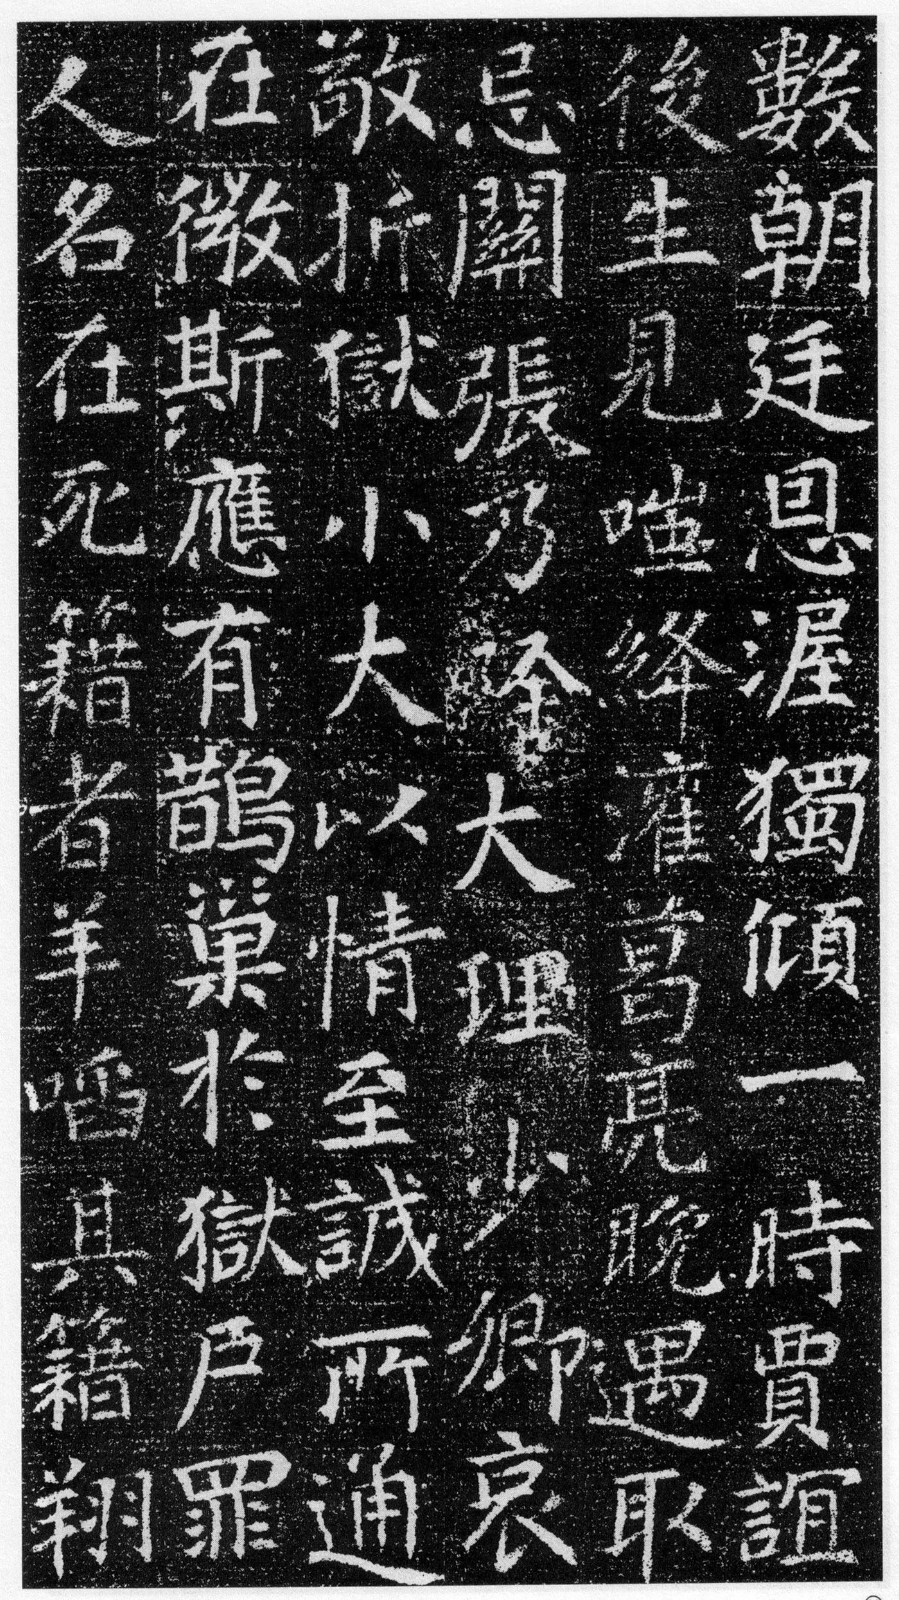 數朝廷恩渥獨傾一時賈誼
後生見嗤絳灌葛亮晚遇取
忌關張乃除大理少卿哀
敬折獄小大以情至誠所通
在徵斯應有鵲巢於獄戶罪
人名在死籍者羊啗其籍翔